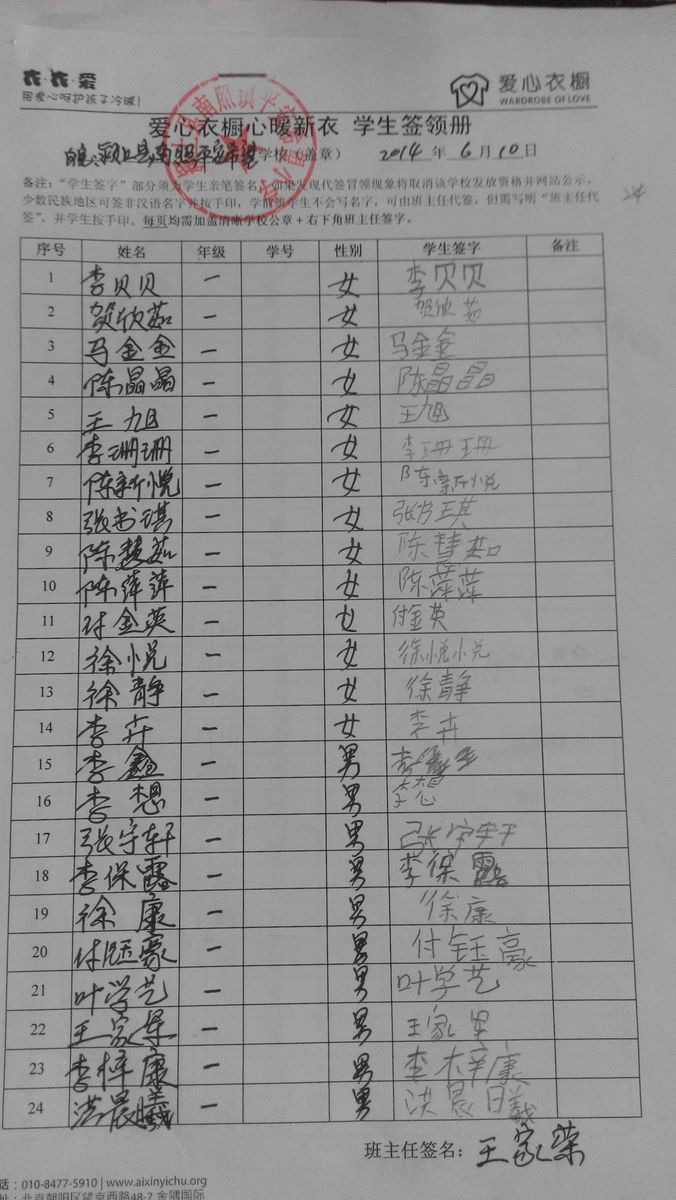 衣·衣·爱
用爱心呵护孩子冷暖!
爱心衣橱
WARDROBE OF LOVE
爱心衣橱心暖新衣 学生签领册
学校(盖章) 2014 年 6 月 10 日
备注:“学生签字”部分须为学生亲笔签名,如果发现代签冒领现象将取消该学校发放资格并网站公示。
少数民族地区可签非汉语名字并按手印,学前班学生不会写名字,可由班主任代签,但需写明“班主任代
签”,并学生按手印。每页均需加盖清晰学校公章+右下角班主任签字。
序号 姓名 年级 学号 性别 学生签字 备注
1 李贝贝 一 女 李贝贝
2 贺欣茹 一 女 贺欣茹
3 马金金 一 女 马金金
4 陈晶晶 一 女 陈晶晶
5 王旭 一 女 王旭
6 李珊珊 一 女 李珊珊
7 陈新悦 一 女 陈新悦
8 张书琪 一 女 张书琪
9 陈慧茹 一 女 陈慧茹
10 陈萍萍 一 女 陈萍萍
11 付金英 一 女 付金英
12 徐悦 一 女 徐悦悦
13 徐静 一 女 徐静
14 李卉 一 女 李卉
15 李鑫 一 男 李鑫
16 李想 一 男 李想
17 张宇轩 一 男 张宇轩
18 李保露 一 男 李保露
19 徐康 一 男 徐康
20 付钰豪 一 男 付钰豪
21 叶学艺 一 男 叶学艺
22 王家军 一 男 王家军
23 李梓康 一 男 李梓康
24 洪晨曦 一 男 洪晨曦
班主任签名:王家荣
话:010-8477-5910 | www.aixinyichu.org
址:北京朝阳区望京西路48-7 金隅国际